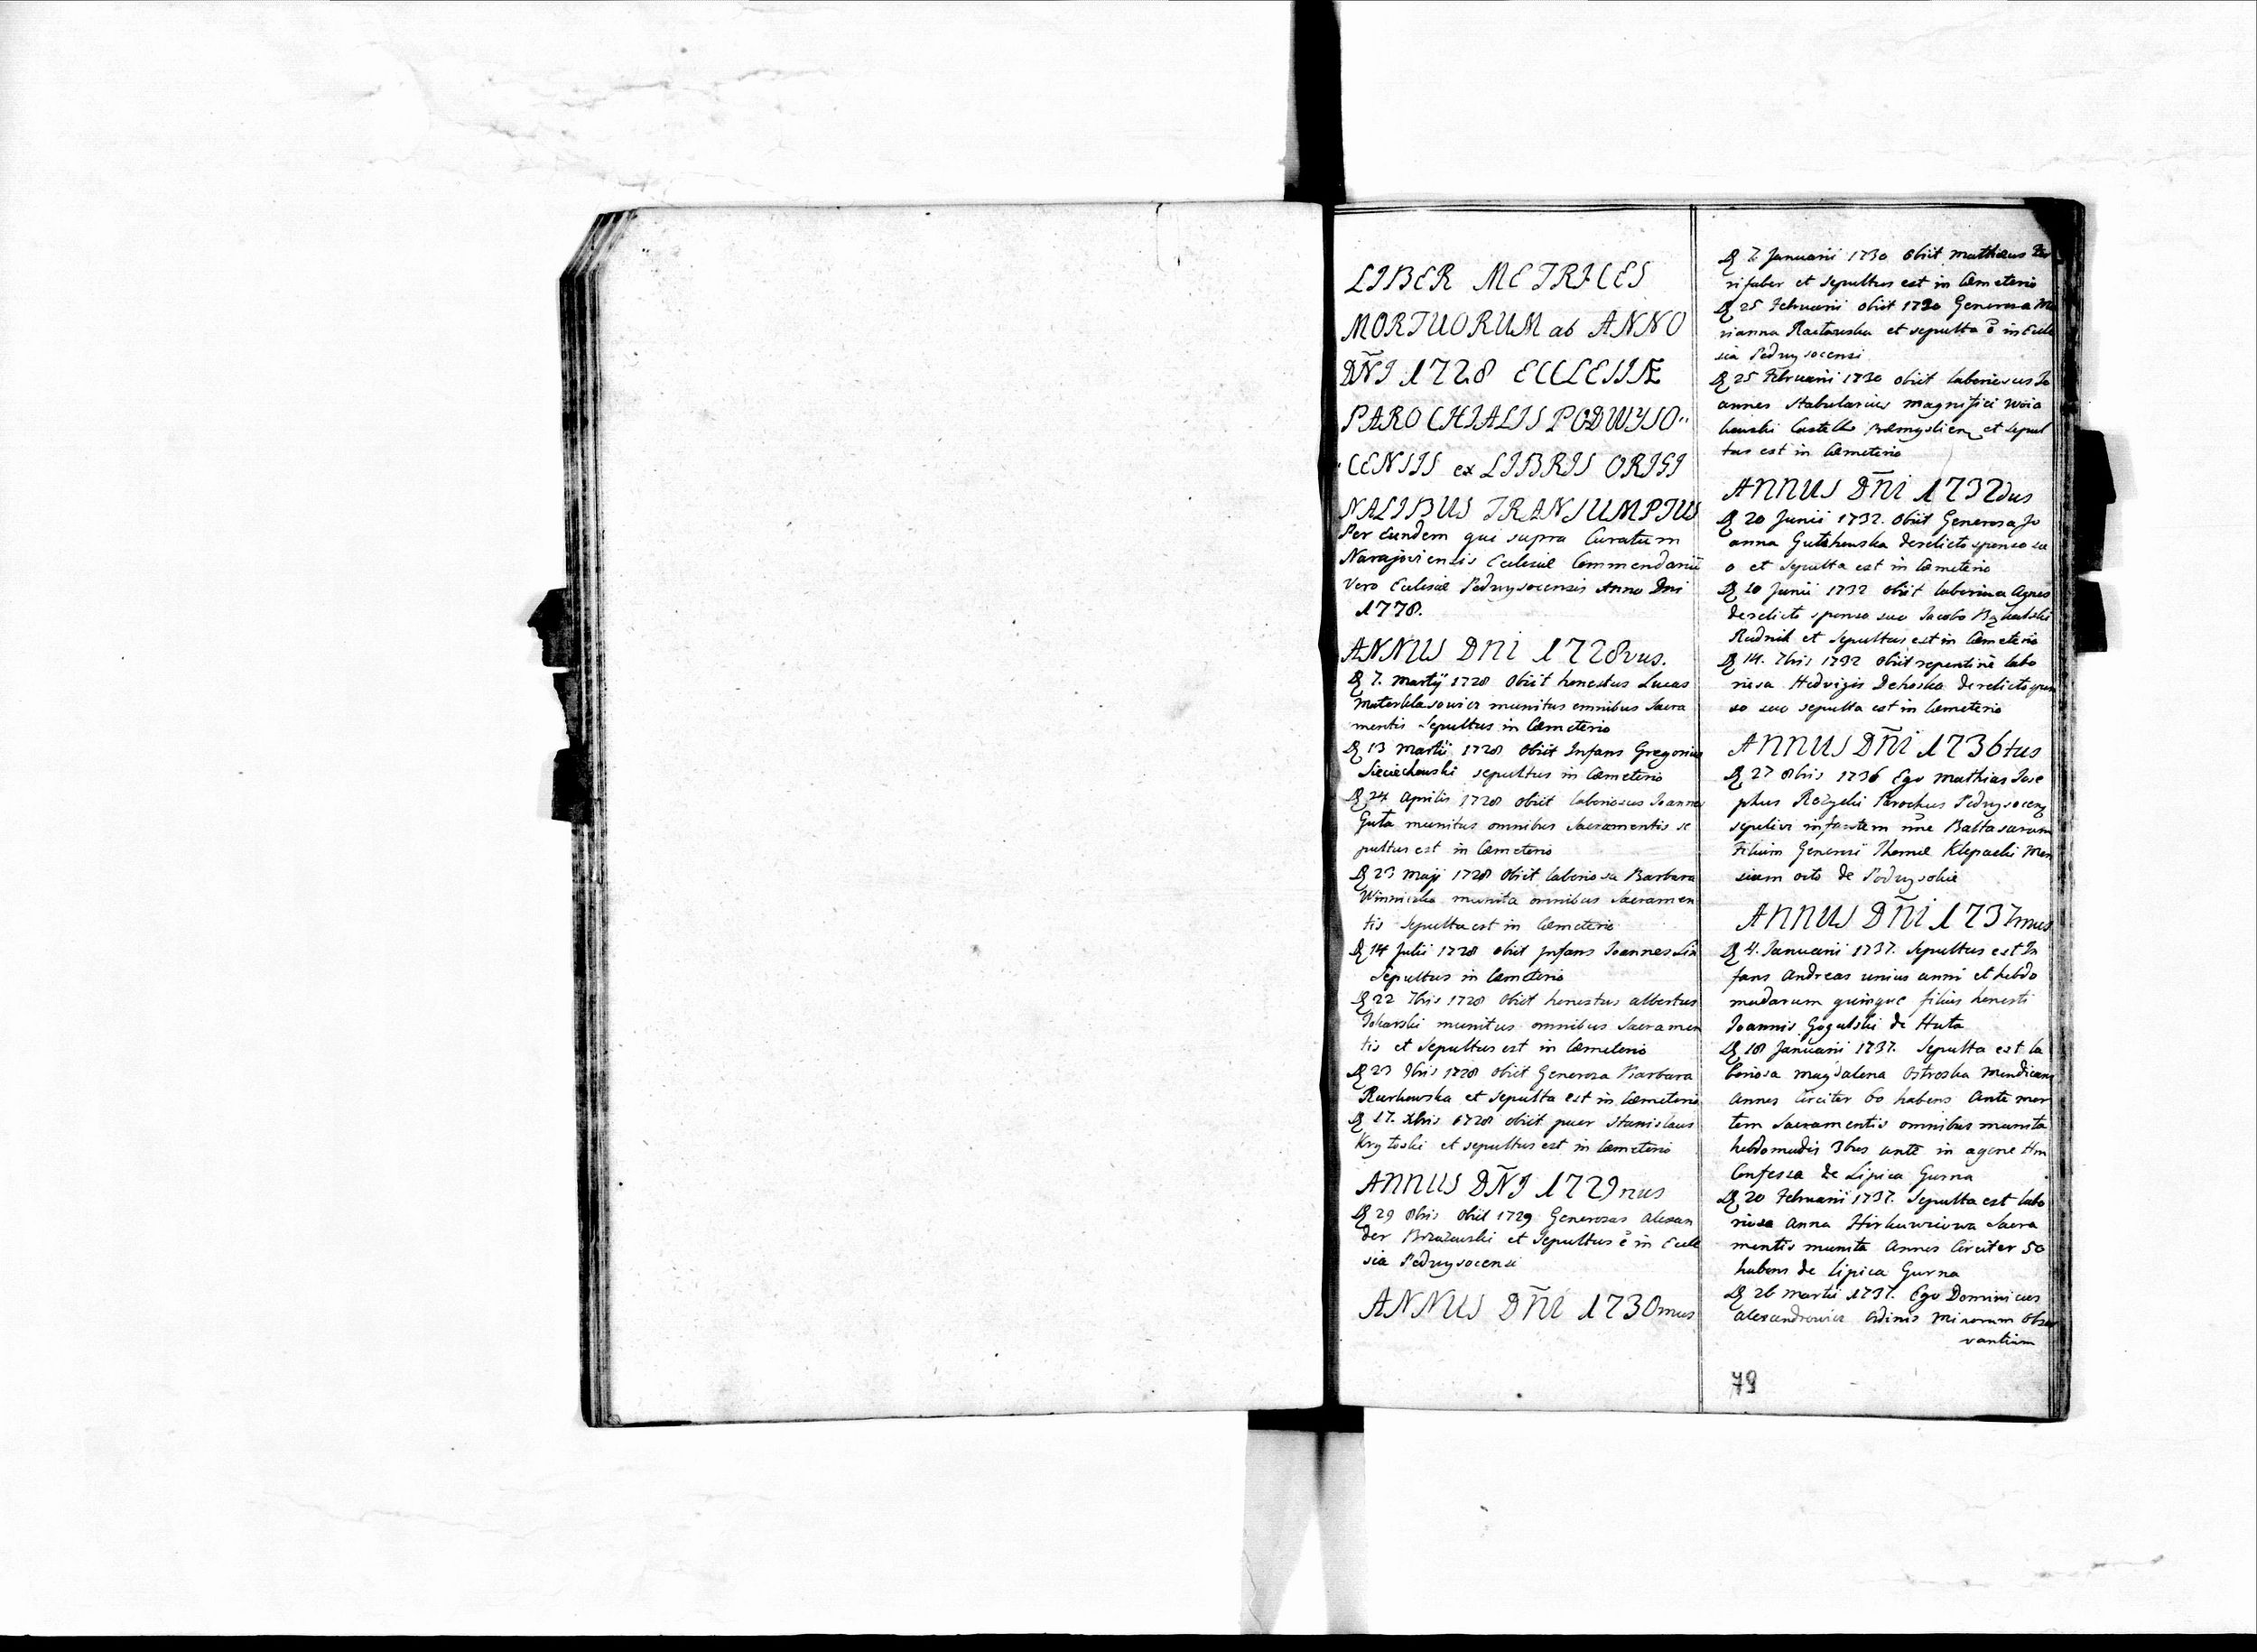 LIBER METRICES
MORTUORUM ab ANNO
DÑI 1728 ECCLESIÆ
PAROCHIALIS PODWYSO..
CENSIS ex LIBRIS ORIGI
NALIBUS TRANSUMPTUS
Per Eundem qui supra Curatum
Narajoviensis Eclesiæ Commendariũ
Vero Eclesiæ Podwysocensis Anno Dni
1778.
ANNUS DNI 1728vus.
D 7. Martÿ 1728 Obiit honestus Lucas
munitus omnibus Sacra
mentis Sepultus in Cæmeterio
D 13 Martii 1728 Obiit Infans Gregorius
Sieciechowski sepultus in Cæmeterio
D 24 Aprilis 1728 obiit laboriosus Joannes
Guta munitus omnibus Sacramentis se
pultus est in Cæmeterio
D 23 Maji 1728 Obiit laboriosa Barbara
Winnicka munita omnibus Sacramen
tis Sepulta est in Cæmeterio
D 14 Julii 1728 obiit Infans Joannes
Sepultus in Cæmeterio
D 22 7bris 1728 Obiit honestus Albertus
Tokarski munitus omnibus Sacramen
tis et Sepultus est in Cæmeterio
D 23 9bris 1728 obiit Generosa Barbara
Rurkowska et Sepulta est in Cæmeterio
D 17. Xbris 1728 obiit puer Stanislaus
et sepultus est in Cæmeterio
ANNUS DÑI 1729nus
D 29 8bris Obiit 1729 Generosus Alexan
der et Sepultus ẽ in Eccle
sia Podwysocensi
ANNUS DÑI 1730mus
D 7 Januarii 1730 Obiit Mathæus Fer
rifaber et Sepultus est in Cæmeterio
D 25 Februarii obiit 1730 Generosa Ma
rianna et sepulta ẽ in Eccle
sia Podwysocensi
D 25 Februarii 1730 obiit laboriosus Jo
annes Stabularius Magnifici Woia
kowski Castell et Sepul
tus est in Cæmeterio
ANNUS DÑI 1732dus
D 20 Junii 1732. Obiit Generosa Jo
anna derelicto sponso su
o et Sepulta est in Cæmeterio
D 20 Junii 1732 obiit laboriosa Agnes
derelicto sponso suo Jacobo
Rudnik et Sepultus est in Cæmeterio
D 14. 7bris 1732 Obiit repentine labo
riosa Hedvigis Dehoska derelicto spon
so suo sepulta est in Cæmeterio
ANNUS DÑI 1736tus
D 27 8bris 1736 Ego Mathias Jose
phus Rozycki Parochus Podwysocen
sepelivi infantem nñe Baltasarum
Filium Generosi Thomæ Klepacki Men
sium octo de Podwysokie
ANNUS DÑI 1737mus
D 4. Januarii 1737. Sepultus est In
fans Andreas unius anni et hebdo
madarum quinque filius honesti
Joannis Gogulski de Huta
D 18 Januarii 1737. Sepulta est la
boriosa Magdalena Ostroska Mendicans
Annos Circiter 60 habens Ante mor
tem Sacramentis omnibus munita
hebdomadis 3bus ante in agone
Confessa de Lipica Gurna
D 20 Februarii 1737. Sepulta est labo
riosa Anna Sacra
mentis munita Annos Circiter 50
habens de Lipica Gurna
D 26 Martii 1737. Ego Dominicus
Alexandrowicz Ordinis Minorum Obser
vantium
79